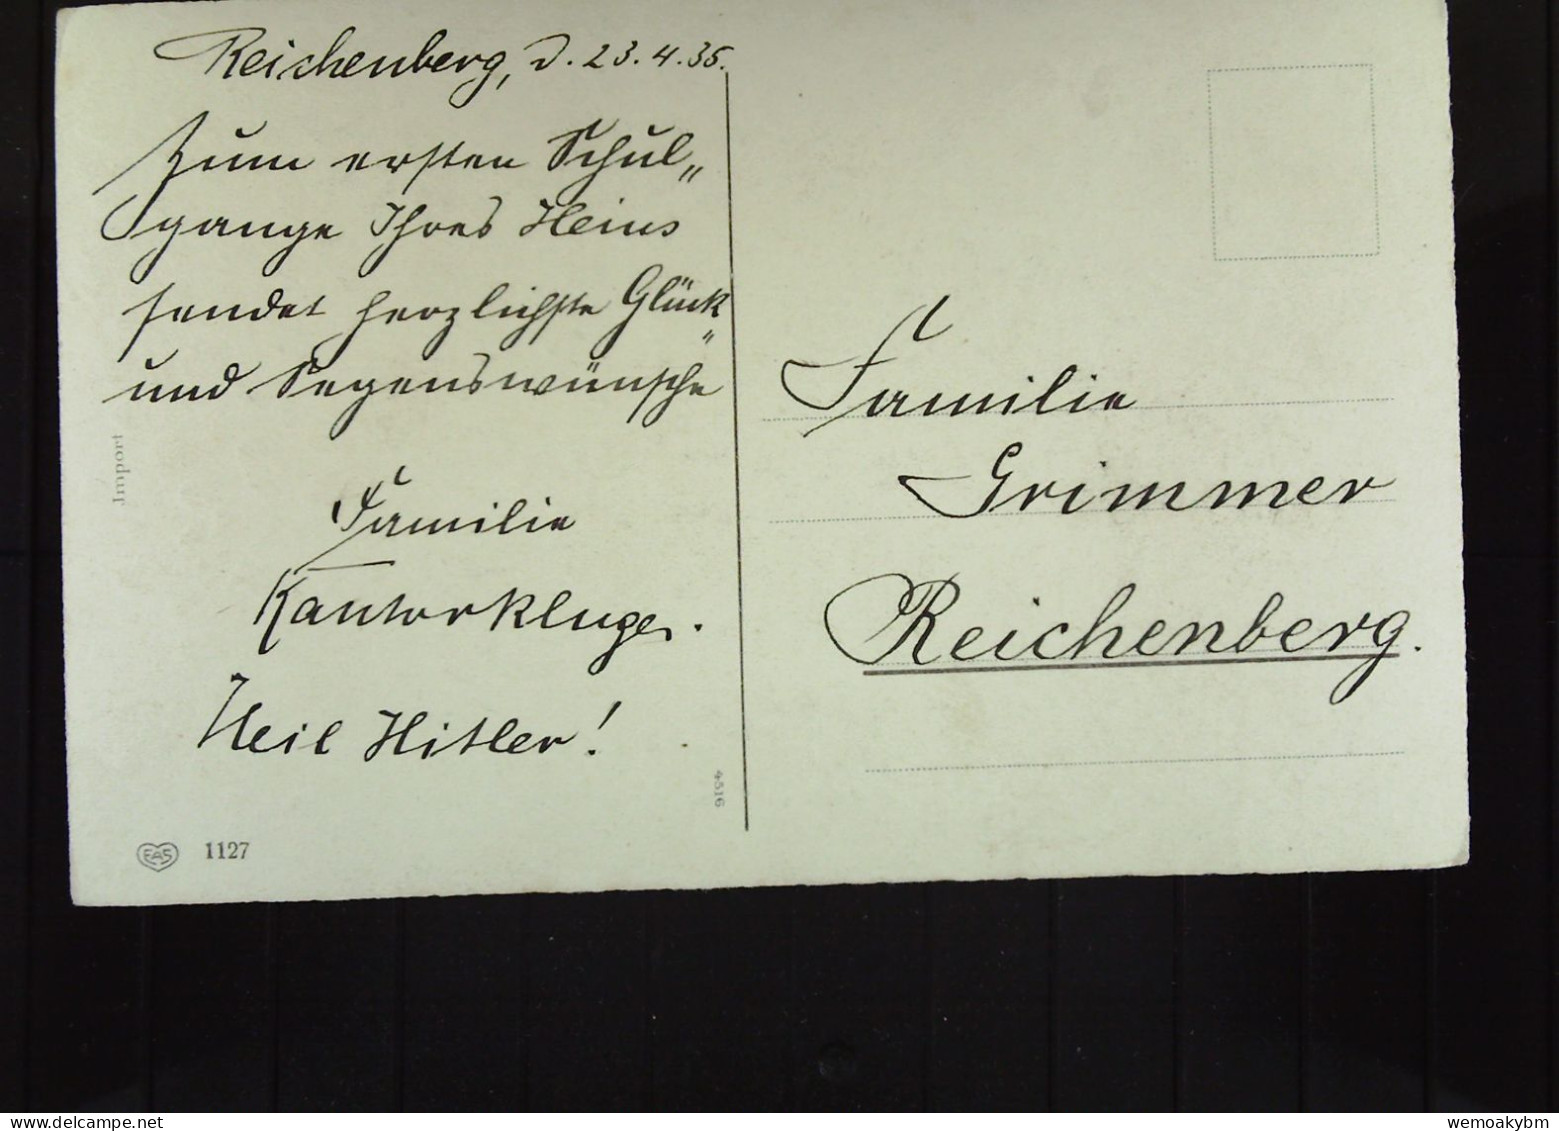 Reichenberg, d. 23.4.35.
Zum ersten Schul„
gange Ihres Heins
sendet herzlichste Glück
„
und Segenswünsche
Familie
Kantor Kluge.
Heil Hitler!
Import
EAS 1127
4516
Familie
Grimmer
Reichenberg.
delcampe.net
wemoakybm